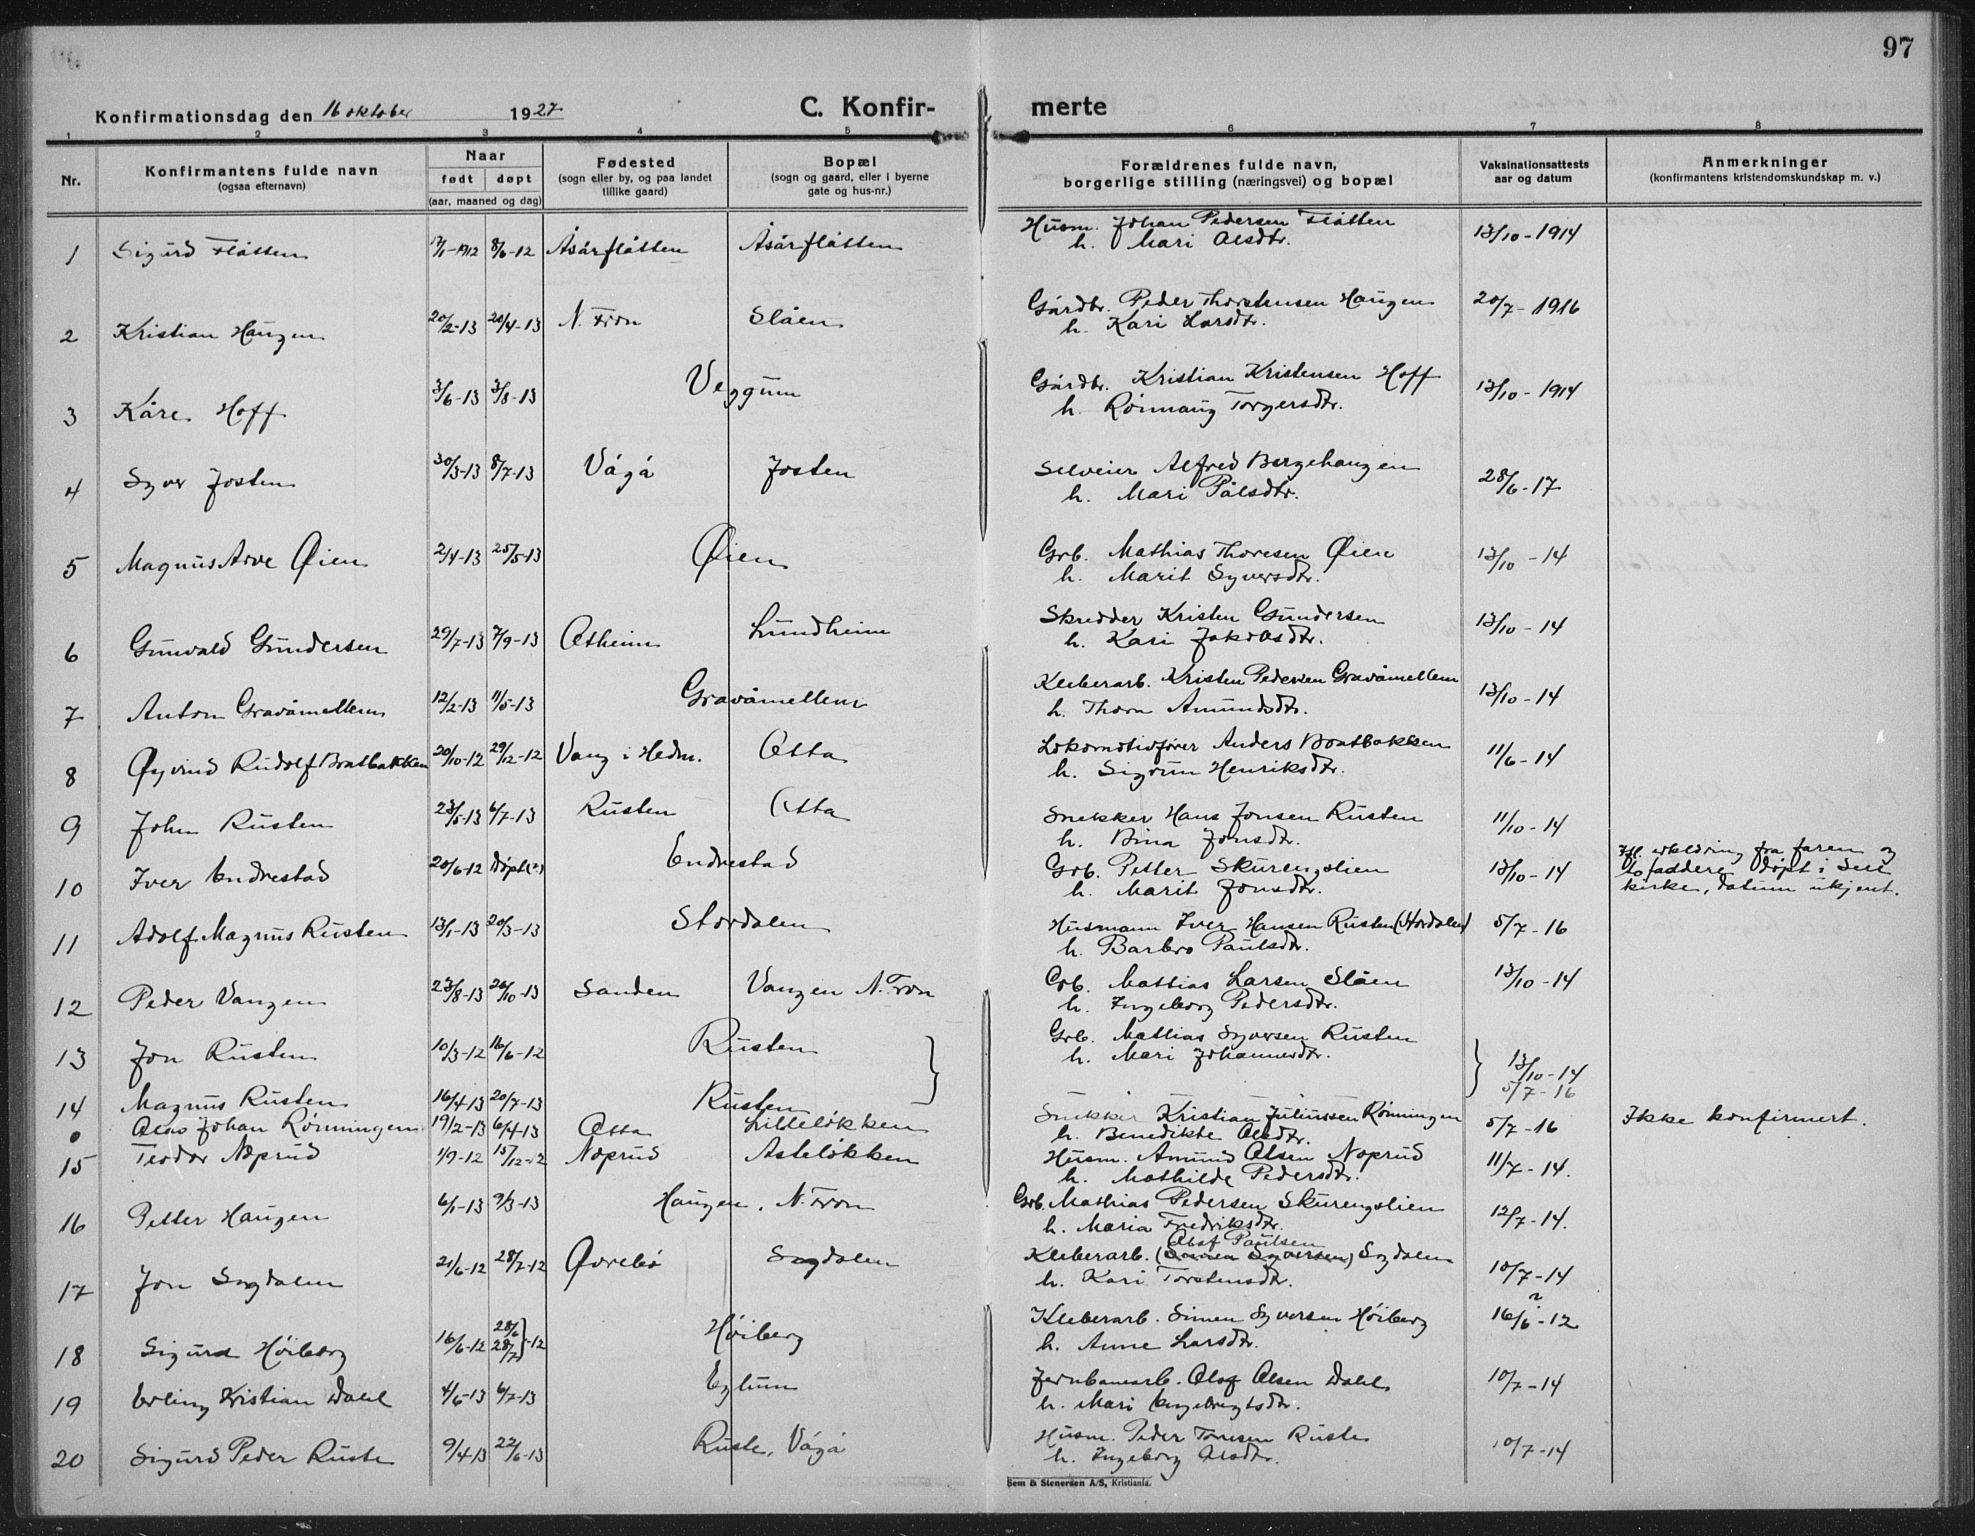 97
Konfirmationsdag den 16 oktober 1927 C. Konfir- merte
1 2 3 4 5 6 7 8
Nr. Konfirmantens fulde navn (ogsaa efternavn) Naar født døpt (aar, maaned og dag) Fødested (sogn eller by, og paa landet tillike gaard) Bopæl (sogn og gaard, eller i byerne gate og hus-nr.) Forældrenes fulde navn, borgerlige stilling (næringsvei) og bopæl Vaksinationsattests aar og datum Anmerkninger (konfirmantens kristendomskundskap m. v.)
1 Sigurd Flåtten 8/6-12 Åsårflåtten Åsårflåtten Husm. Johan Pedersen Flåtten 13/10-1914
h. Mari Olsdtr.
2 Kristian Haugen 20/2-13 20/4-13 N. Fron Slåen Gårdbr. Peder Thorstensen Haugen 20/7-1916
h. Kari Larsdtr.
3 Kåre Hoff 3/6-13 3/8-13 Veggum Gårdbr. Kristian Kristensen Hoff 13/10-1914
h. Rønnaug Torgersdtr.
4 Syver Josten 30/3-13 8/7-13 Vågå Josten Selveier Alfred Borgehaugen 28/6-17
h. Mari Pålsdtr.
5 Magnus Arve Øien 2/4-13 25/5-13 Øien Grb. Mathias Thoresen Øien 13/10-14
h. Marit Syversdtr.
6 Gunvald Gundersen 29/7-13 7/9-13 Otheim Lundheim Skredder Kristen Gundersen 13/10-14
h. Kari Jakobsdtr.
7 Anton Gravåmellem 12/2-13 11/5-13 Gravåmellem Kleberarb. Kristen Pedersen Gravåmellem 13/10-14
h. Thora Amundsdtr.
8 Øyvind Rudolf Bratbakken 20/10-12 29/12-12 Vang i Hedm. Otta Lokomotivfører Anders Bratbakken 11/6-14
h. Sigrun Henriksdtr.
9 John Rusten 23/5-13 6/7-13 Rusten Otta Snekker Hans Jonsen Rusten 11/10-14
h. Bina Jonsdtr.
10 Iver Endrestad 20/6-12 Døpt(?) Endrestad Grb. Petter Skurengslien 13/10-14 Ifl. erklæring fra faren og
h. Marit Jonsdtr. faddere døpt i Sell
kirke, datum ukjent.
11 Adolf Magnus Rusten 13/1-13 20/3-13 Stordalen Husmann Iver Hansen Rusten (Stordalen) 5/7-16
h. Barbro Paulsdtr.
12 Peder Vangen 23/8-13 26/10-13 Sanden Vangen N. Fron Grb. Mathias Larsen Slåen 13/10-14
h. Ingeborg Pedersdtr.
13 Jon Rusten 10/3-12 16/6-12 Rusten } Grb. Mathias Syversen Rusten } 13/10-14
h. Mari Johannesdtr.
14 Magnus Rusten 16/4-13 20/7-13 Rusten 5/7-16
0 Olas Johan Rønningen 19/2-13 6/4-13 Otta Lilleløkken Snekker Kristian Juliussen Rønningen 5/7-16 Ikke konfirmert.
h. Benedikte Olsdtr.
15 Teodor Næprud 1/9-12 15/12-12 Næprud Asleløkken Husm. Amund Olsen Næprud 11/7-14.
h. Mathilde Pedersdtr.
16 Petter Haugen 6/1-13 9/3-13 Haugen, N. Fron Grb. Mathias Pedersen Skurengslien 12/7-14.
h. Maria Fredriksdtr.
Olaf Paulsen
17 Jon Sagdalen 21/6-12 28/7-12 Øvrebø Sagdalen Kleberarb. (Simen Syversen) Sagdalen 10/7-14
h. Kari Torstensdtr.
18 Sigurd Høiberg 16/6-12 28/6 28/7}-12 Høiberg Kleberarb. Simen Syversen Høiberg 16/6-12 ?
h. Anne Larsdtr.
19 Erling Kristian Dahl 4/6-13 6/7-13 Eglum Jernbanearb. Olaf Olsen Dahl 10/7-14
h. Mari Engebrigtsdtr.
20 Sigurd Peder Ruste 9/4-13 22/6-13 Ruste, Vågå Husm. Peder Torresen Ruste 10/7-14
h. Ingeborg Olsdtr.
Sem & Stenersen A/S, Kristiania.